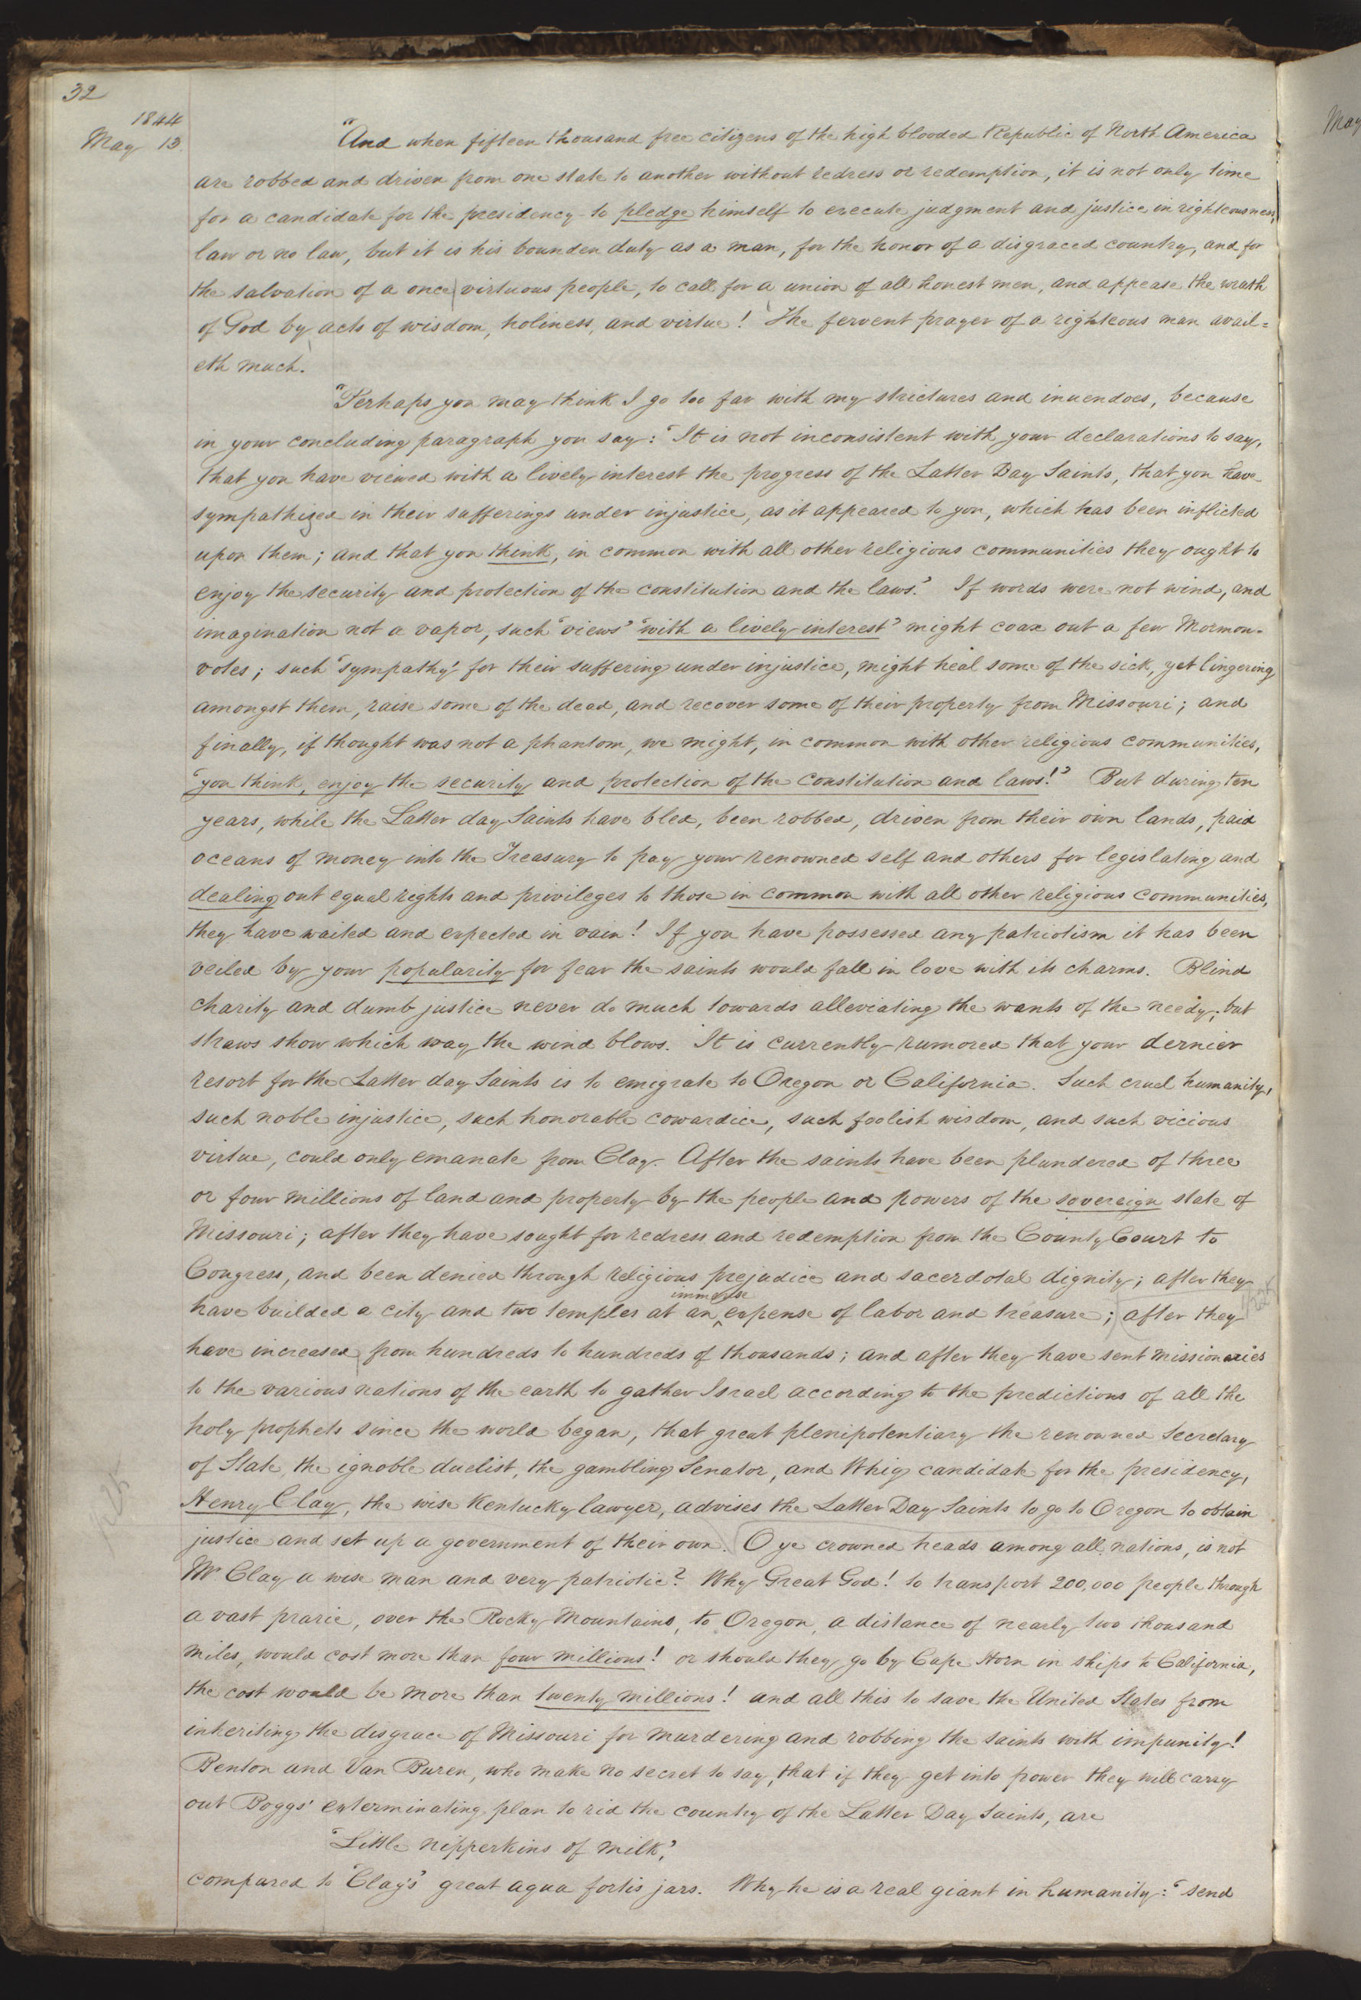 32
1844
May 13.
"And when fifteen thousand free citizens of the high blooded Republic of North America
are robbed and driven from one state to another without redress or redemption, it is not only time
for a candidate for the presidency to pledge himself to execute judgment and justice in righteousness,
law or no law, but it is his bounden duty as a man, for the honor of a disgraced country, and for
the salvation of a once virtuous people, to call for a union of all honest men, and appease the wrath
of God by acts of wisdom, holiness, and virtue! The fervent prayer of a righteous man avail=
eth much.
"Perhaps you may think I go too far with my strictures and inuendoes, because
in your concluding paragraph you say: "It is not inconsistent with your declarations to say,
that you have viewed with a lively interest the progress of the Latter Day Saints, that you have
sympathized in their sufferings under injustice, as it appeared to you, which has been inflicted
upon them; and that you think, in common with all other religious communities they ought to
enjoy the security and protection of the constitution and the laws." If words were not wind, and
imagination not a vapor, such "views" "with a lively interest" might coax out a few Mormon
votes; such "sympathy" for their suffering under injustice, might heal some of the sick, yet lingering
amongst them, raise some of the dead, and recover some of their property from Missouri; and
finally, if thought was not a phantom, we might, in common with other religious communities,
"you think, enjoy the security and protection of the constitution and laws!" But during ten
years, while the Latter day Saints have bled, been robbed, driven from their own lands, paid
oceans of money into the Treasury to pay your renowned self and others for legislating and
dealing out equal rights and privileges to those in common with all other religious communities,
they have waited and expected in vain! If you have possessed any patriotism it has been
veiled by your popularity for fear the saints would fall in love with its charms. Blind
charity and dumb justice never do much towards alleviating the wants of the needy; but
straws show which way the wind blows. It is currently rumored that your dernier
resort for the Latter day Saints is to emigrate to Oregon or California. Such cruel humanity,
such noble injustice, such honorable cowardice, such foolish wisdom, and such vicious
virtue, could only emanate from Clay. After the saints have been plundered of three
or four millions of land and property by the people and powers of the sovereign state of
Missouri; after they have sought for redress and redemption from the County Court to
Congress, and been denied through religious prejudice and sacerdotal dignity; after they
immense
have builded a city and two temples at an expense of labor and treasure; after they
have increased from hundreds to hundreds of thousands; and after they have sent missionaries
to the various nations of the earth to gather Israel according to the predictions of all the
holy prophets since the world began, that great plenipotentiary the renowned Secretary
of State, the ignoble duelist, the gambling Senator, and Whig candidate for the presidency,
Henry Clay, the wise Kentucky lawyer, advises the Latter Day Saints to go to Oregon to obtain
justice and set up a government of their own. O ye crowned heads among all nations, is not
Mr Clay a wise man and very patriotic? Why Great God! to transport 200,000 people through
a vast prarie, over the Rocky Mountains, to Oregon, a distance of nearly two thousand
miles, would cost more than four millions! or should they go by Cape Horn in ships to California,
the cost would be more than twenty millions! and all this to save the United States from
inheriting the disgrace of Missouri for murdering and robbing the saints with impunity!
Benton and Van Buren, who make no secret to say, that if they get into power they will carry
out Boggs' exterminating plan to rid the country of the Latter Day Saints, are
"Little nipperkins of milk,"
compared to "Clay's" great aqua fortis jars. Why he is a real giant in humanity: "send
May